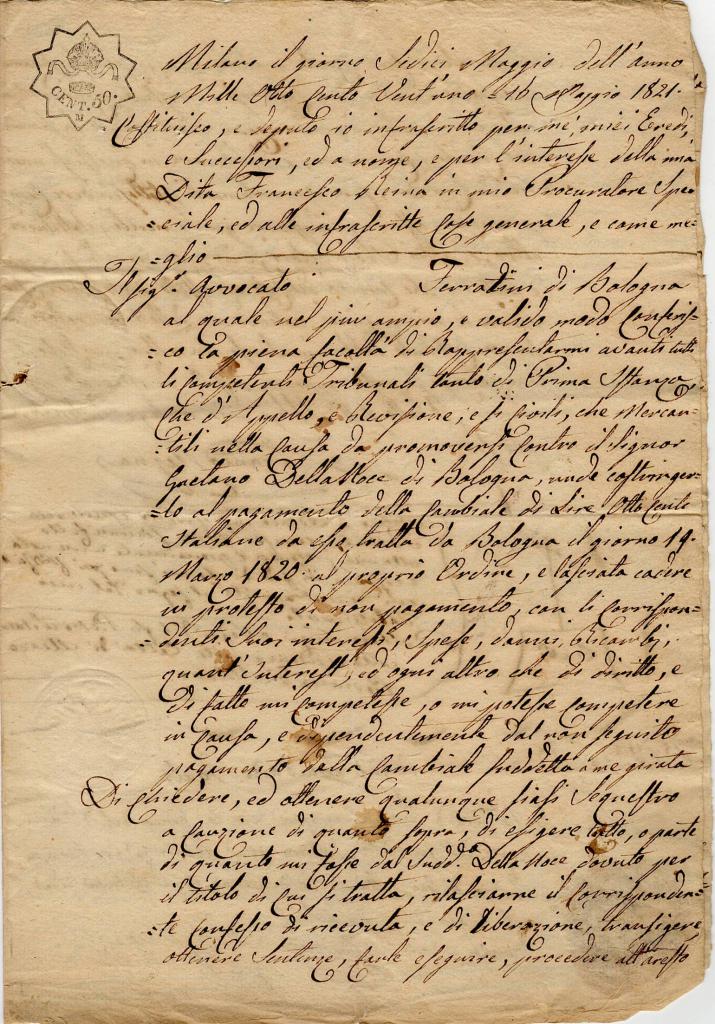 CENT. 50.
M
Milano il giorno Sedici Maggio dell'anno
Mille Otto Cento Vent'uno = 16 Maggio 1821.
Costituisco, e deputo io infrascritto per me, miei Eredi,
e Successori, ed a nome, e per l'interesse della mia
Ditta Francesco Reina in mio Procuratore Spe=
=ciale, ed alle infrascritte cose generale, e come me=
=glio
Il Sig.r Avvocato Terrachini di Bologna
al quale nel più ampio, e valido modo conferis=
=co la piena facoltà di Rappresentarmi avanti tutti
li competenti Tribunali tanto di Prima Istanza,
che d'Appello, e Revisione, e si Civili, che Mercan=
=tili nella Causa da promoversi contro il Signor
Gaetano Dalla Noce di Bologna, onde costringer=
=lo al pagamento della Cambiale di Lire Otto Cento
Italiane da essa tratta da Bologna il giorno 19.
Marzo 1820. al proprio Ordine, e lasciata cadere
in protesto di non pagamento, con li corrispon=
=denti Suoi interessi, Spese, danni, Ricambj,
quant'Interest, ed ogni altro che di diritto, e
di fatto mi competesse, o mi potesse competere
in Causa, e dipendentemente dal non seguito
pagamento della Cambiale suddetta a me girata
Di Chiedere, ed ottenere qualunque siasi Sequestro
a cauzione di quanto sopra, di esigere tutto, o parte
di quanto mi fosse dal Sudd.o Dalla Noce dovuto per
il titolo di cui si tratta, rilasciarne il corrisponden=
=te confesso di ricevuta, e di liberazione, transigere,
ottenere Sentenze, farle eseguire, procedere all'aresto